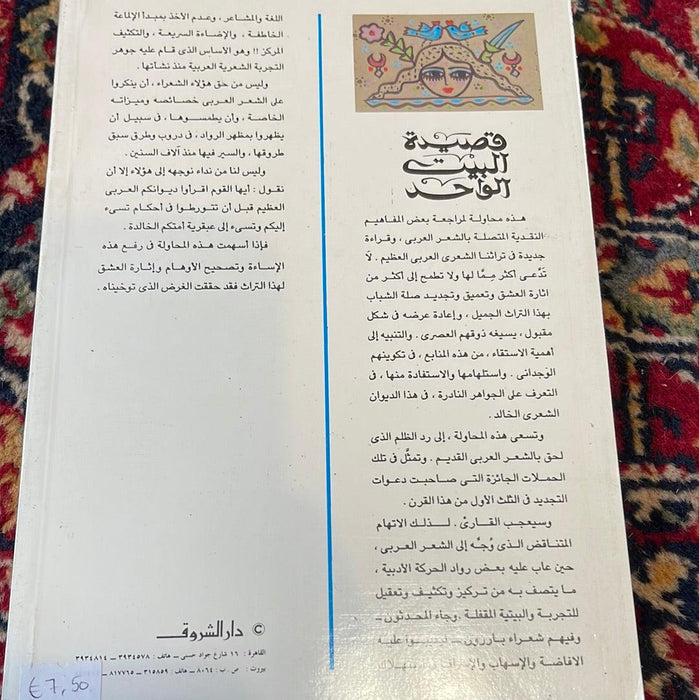 قصيدة
البيت
الواحد
هذه محاولة لمراجعة بعض المفاهيم
النقدية المتصلة بالشعر العربى ، وقراءة
جديدة فى تراثنا الشعرى العربى العظيم . لَا
تَدَّعى أكثر مِمَّا لها ولا تطمح إلى أكثر من
اثارة العشق وتعميق وتجديد صلة الشباب
بهذا التراث الجميل ، وإعادة عرضه فى شكل
مقبول ، يسيغه ذوقهم العصرى . والتنبيه إلى
أهمية الاستقاء ، من هذه المنابع ، فى تكوينهم
الوَجدانى . واستلهامها والاستفادة منها ، فى
التعرف على الجواهر النادرة ، فى هذا الديوان
الشعرى الخالد .
وتسعى هذه المحاولة ، إلى رد الظلم الذى
لحق بالشعر العربى القديم . وتمثَّل فى تلك
الحملات الجائزة التى صاحبت دعوات
التجديد فى الثلث الأول من هذا القرن .
وسيعجب القارئ . لذلك الاتهام
المتناقض الذى وُجَّه إلى الشعر العربى ،
حين عاب عليه بعض رواد الحركة الأدبية ،
ما يتصف به من تركيز وتكثيف وتعقيل
للتجربة والبيتية المقفلة . وجاء المحدثون ــ
وفيهم شعراء بارزون ــ عليه
الافاضة والإسهاب
اللغة والمشاعر ، وعدم الأخذ بمبدأ الإلماعة
الخاطفة ، والإضاءة السريعة ، والتكثيف
المركز !! وهو الأساس الذى قام عليه جوهر
التجربة الشعرية العربية منذ نشأتها .
وليس من حق هؤلاء الشعراء ، أن ينكروا
على الشعر العربى خصائصه وميزاته
الخاصة ، وأن يطمسوها ، فى سبيل أن
يظهروا بمظهر الرواد ، فى دروب وطرق سبق
طروقها ، والسير فيها منذ آلاف السنين .
وليس لنا من نداء نوجهه إلى هؤلاء إلا أن
نقول : أيها القوم اقرأوا ديوانكم العربى
العظيم قبل أن تتورطوا فى أحكام تسىء
إليكم وتسىء إلى عبقرية أمتكم الخالدة .
فإذا أسهمت هذه المحاولة فى رفع هذه
الإساءة وتصحيح الأوهام وإثارة العشق
لهذا التراث فقد حققت الغرض الذى توخيناه .
© دار الشروق
القاهرة : ١٦ شارع جواد حسى ــ هاتف : ٣٩٣٤٥٧٨ ــ ٣٩٣٤٨١٤
بيروت : ص . ب : ٨٠٦٤ ــ هاتف : ٣١٥٨٥٩ ــ ٨١٧٧٦٥ ــ
€ 7,50